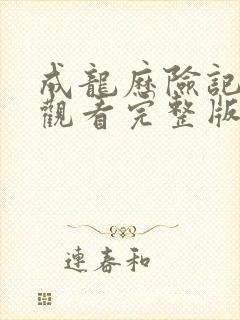 成龍歷險記
觀看完整版
連春和